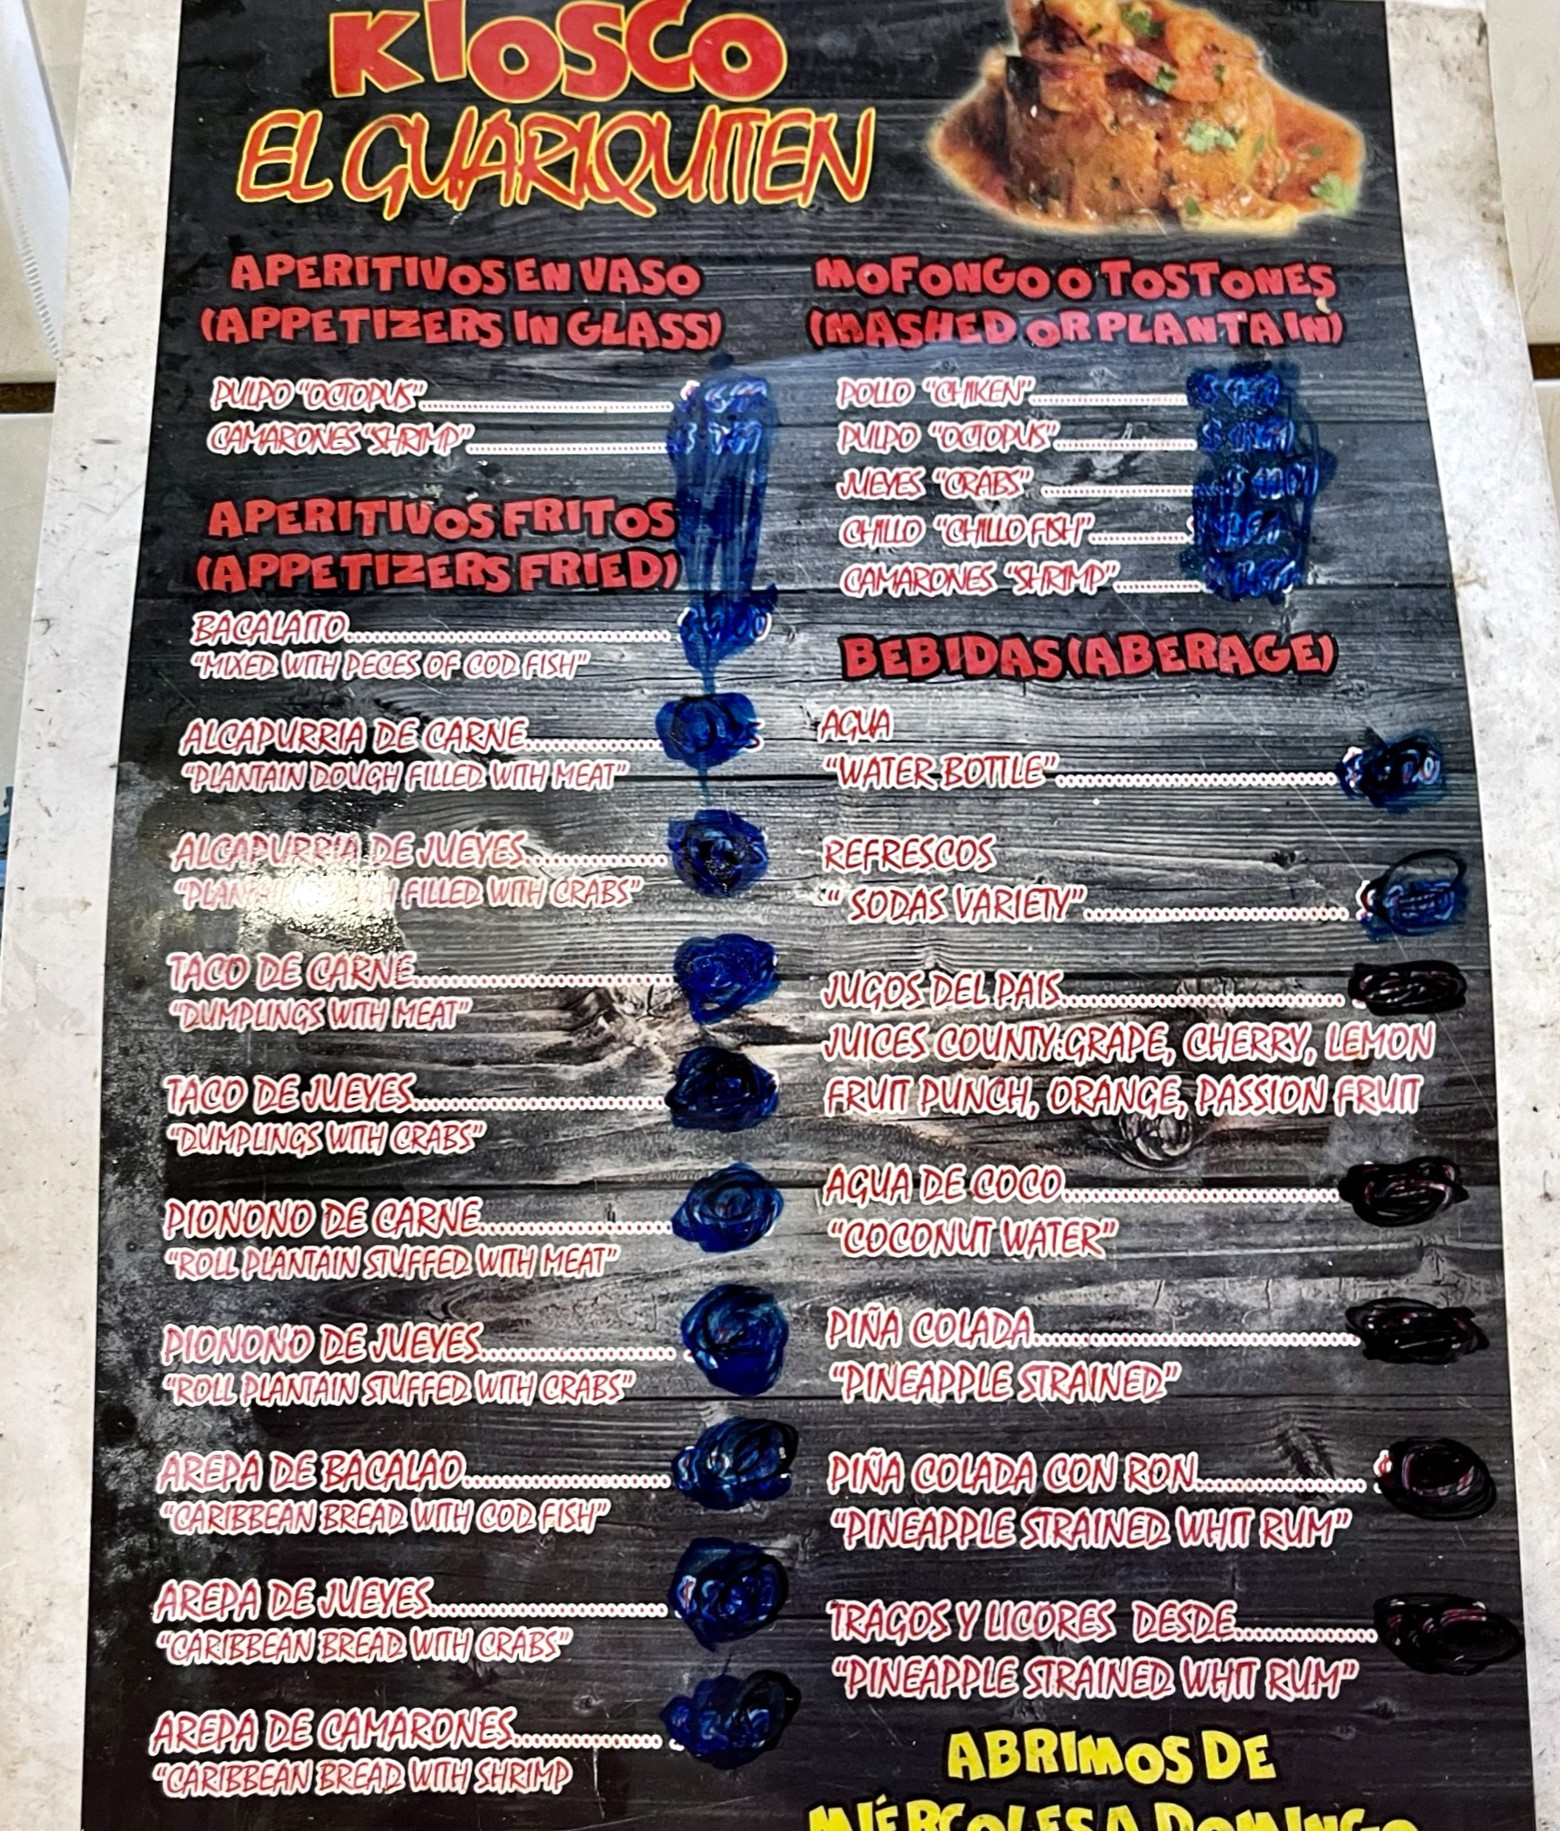 KIOSCO
EL GUARIQUITEN
APERITIVOS EN VASO
(APPETIZERS IN GLASS)
PULPO "OCTOPUS"
CAMARONES "SHRIMP"
APERITIVOS FRITOS
(APPETIZERS FRIED)
BACALAITO
"MIXED WITH PECES OF COD FISH"
ALCAPURRIA DE CARNE
"PLANTAIN DOUGH FILLED WITH MEAT"
ALCAPURRIA DE JUEYES
FILLED WITH CRABS"
TACO DE CARNE
"DUMPLINGS WITH MEAT"
TACO DE JUEYES
"DUMPLINGS WITH CRABS"
PIONONO DE CARNE
"ROLL PLANTAIN STUFFED WITH MEAT"
PIONONO DE JUEYES
"ROLL PLANTAIN STUFFED WITH CRABS"
AREPA DE BACALAO
"CARIBBEAN BREAD WITH COD FISH"
AREPA DE JUEYES
"CARIBBEAN BREAD WITH CRABS"
AREPA DE CAMARONES
"CARIBBEAN BREAD WITH SHRIMP
MOFONGO O TOSTONES
(MASHED OR PLANTAIN)
POLLO "CHIKEN"
PULPO "OCTOPUS"
JUEYES "CRABS"
CHILLO "CHILLO FISH"
CAMARONES "SHRIMP"
BEBIDAS (ABERAGE)
AGUA
"WATER BOTTLE"
REFRESCOS
" SODAS VARIETY"
JUGOS DEL PAIS
JUICES COUNTY:GRAPE, CHERRY, LEMON
FRUIT PUNCH, ORANGE, PASSION FRUIT
AGUA DE COCO
"COCONUT WATER"
PIÑA COLADA
"PINEAPPLE STRAINED"
PIÑA COLADA CON RON
"PINEAPPLE STRAINED WHIT RUM"
TRAGOS Y LICORES DESDE
"PINEAPPLE STRAINED WHIT RUM"
ABRIMOS DE
MIÉRCOLES A DOMINGO